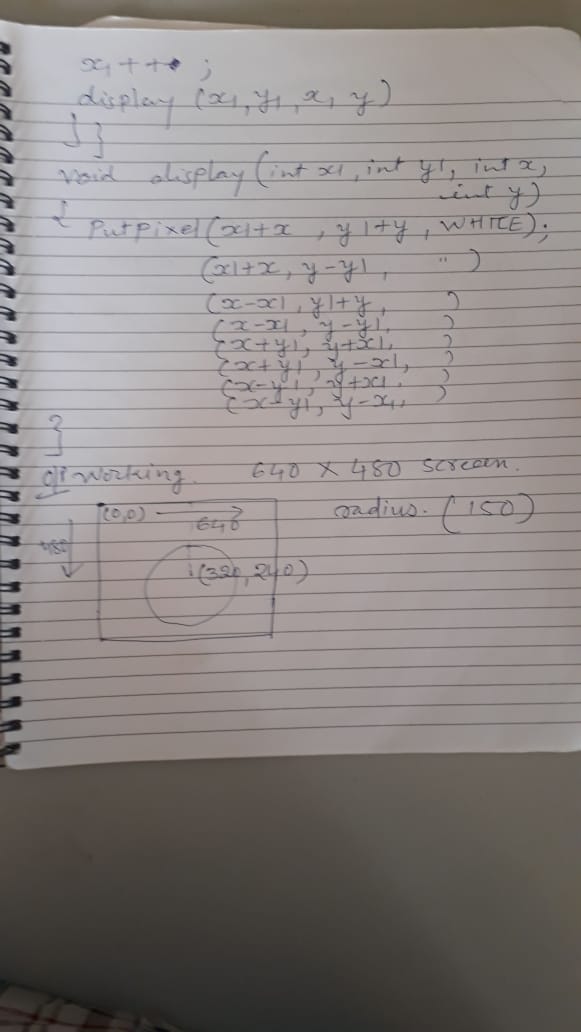 x1++;
display (x1, y1, x, y)
}}
void display (int x1, int y1, int x,
int y)
{ Putpixel (x1+x , y1+y , WHITE);
(x1+x, y-y1, " )
(x-x1, y1+y, )
(x-x1, y-y1, )
(x+y1, y+x1, )
(x+y1, y-x1, )
(x-y1, y+x1, )
(x-y1, y-x1, )
}
working. 640 x 480 screen.
(0,0) 640 radius. (150)
480
(320, 240)